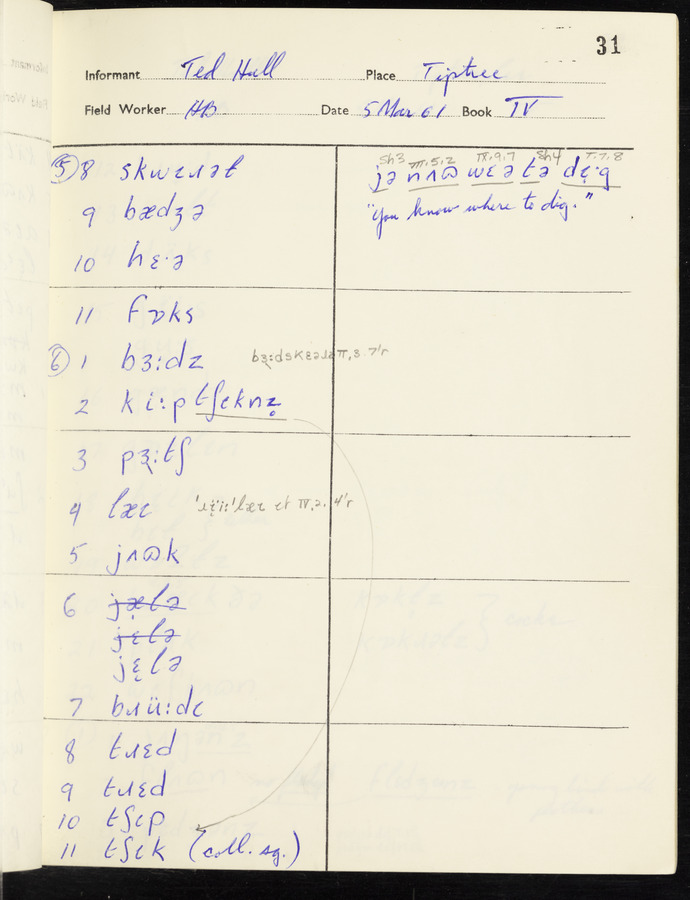 31
Informant Ted Hull Place Tiptree
Field Worker HB Date 5 Mar 61 Book IV
⑤ 8 skwɛɹət
9 bædʒə
10 hɛ·ə
11 fɒks
⑥ 1 bɜ:dz
2 ki:p tʃɛknz̥
3 pɜ:tʃ
4 læɪ
5 jʌʊk
6 jælə
jɛlə
jɛ̣lə
7 bɹü:dɪ
8 tɹɛd
9 tɹɛd
10 tʃɪp
11 tʃɪk (coll. sg.)
Sh3 III.5.2 IX.9.7 Sh4 I.7.8
jə nʌʊ wɛə tə dɪ̣·g
"You know where to dig."